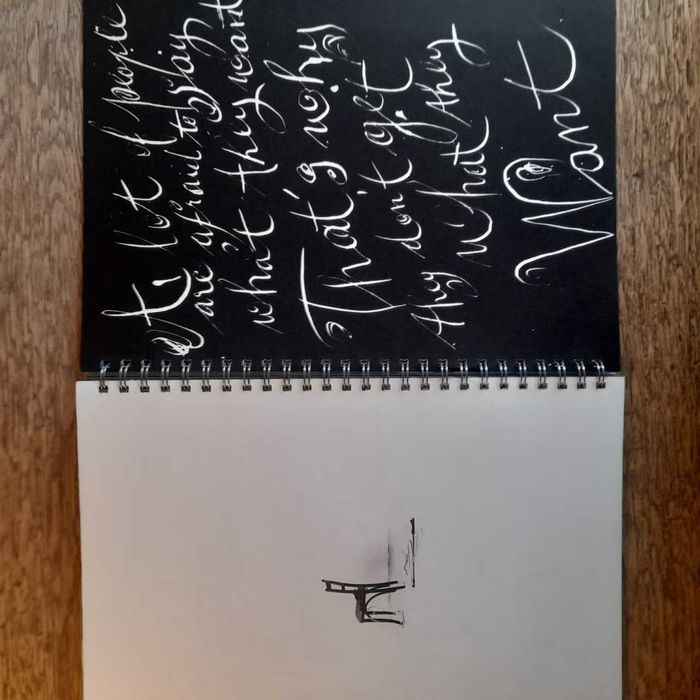 A lot of people
are afraid to say
what they want
That's why
they don't get
what they
Want